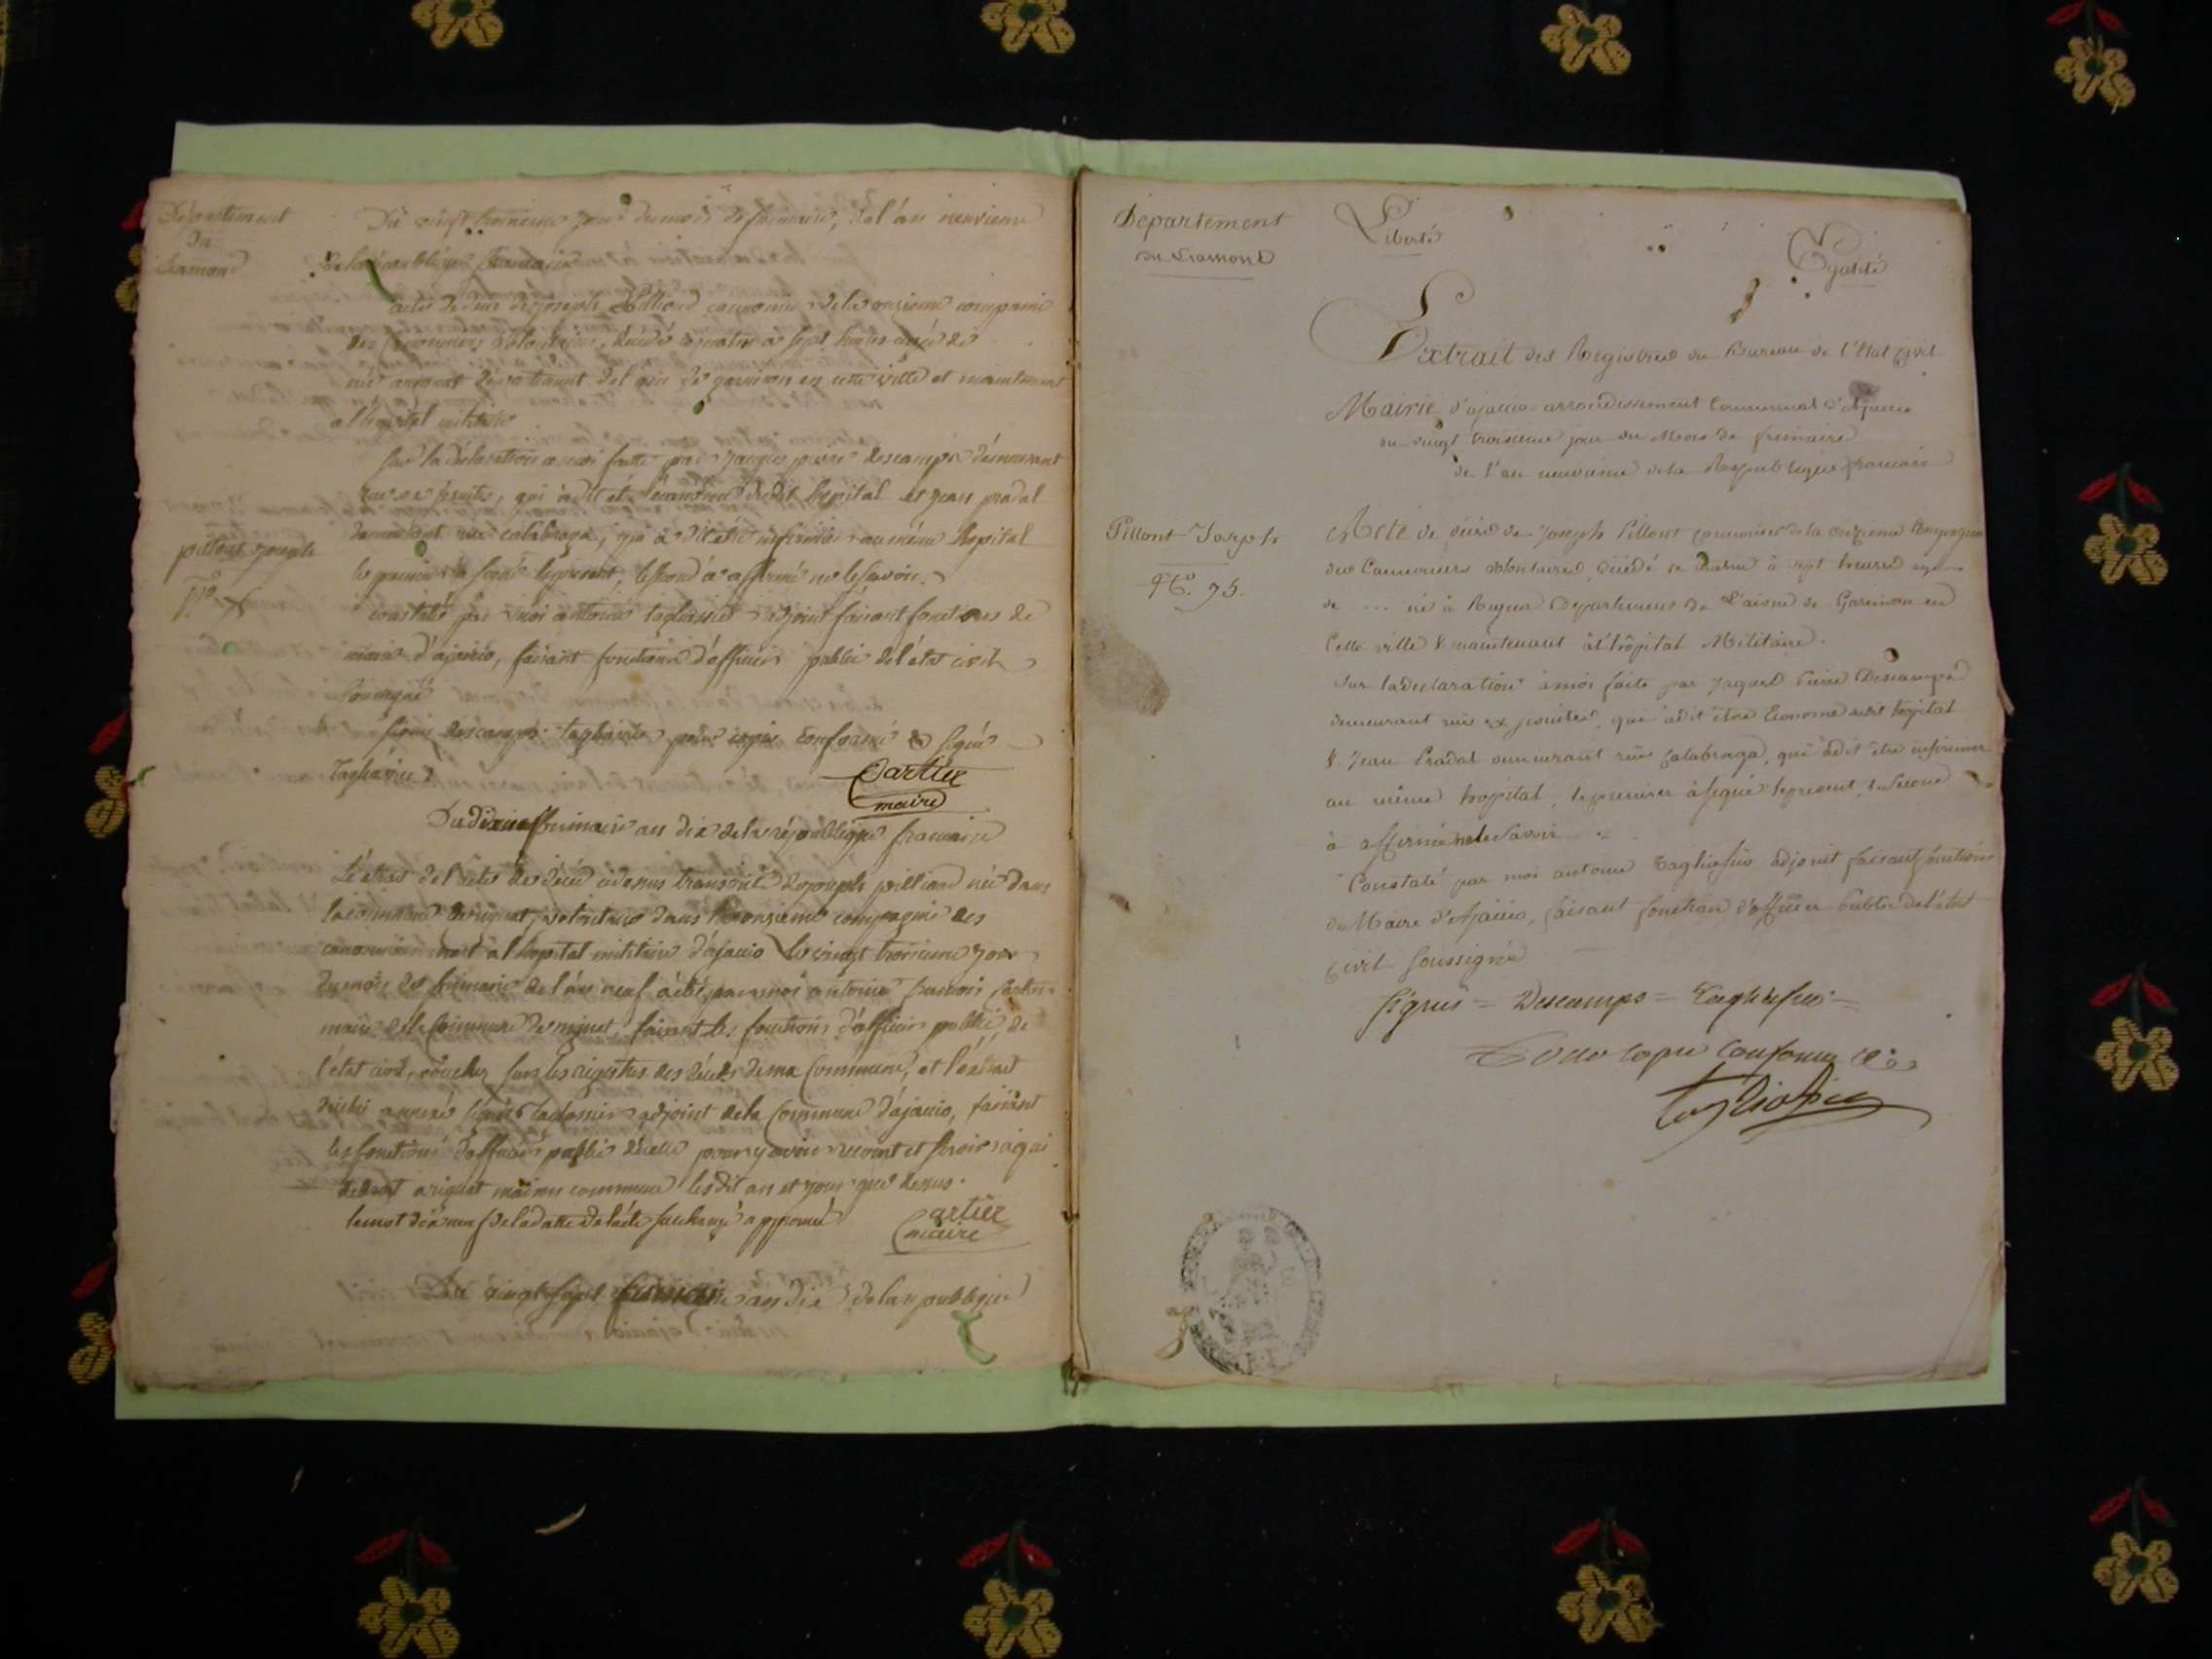 Département
du
Liamone
Du vingt troisieme jour du mois de frimaire, de l'an neuvieme
de la république francaise
acte de décès de joseph Pilliond canonier de la onzieme compagnie
des canonniers volontaires, décédé ce matin a sept heures agé de
né a département de l'aisne de garnison en cette ville et maintenant
a l'hopital militaire
sur la déclaration a moi faitte par jacques pierre descamps demeurant
rue ex jesuites, qui à dit être économe dudit hopital et jean pradal
demeurant rue calabraga, qui à dit être infirmier au même hopital
le premier a signé le présent, le second a affirmé ne le savoir.
pillont joseph
constaté par moi antoine tagliafico adjoint faisant fonctions de
maire d'ajaccio, faisant fonctions d'officier public de l'état civil
soussigné
signé descamps tagliafico pour copie conforme signé
tagliafico Cartier
maire
Du dixneuf frimaire an dix de la république francaise
L'extrait de l'acte de décès ci dessus transcrit de joseph pilliard né dans
la commune de rigniat, volontaire dans la onzieme compagnie des
canonniers mort a l'hopital militaire d'ajaccio le vingt troisieme jour
du mois de frimaire de l'an neuf à été par moi antoine francois cartier
maire de la commune de rignat, faisant les fonctions d'officier public de
l'état civil, couché sur les registres des décès de ma commune, et l'extrait
signé adjoint de la commune d'ajaccio, faisant
les fonctions d'officier public d'icelle pour y avoir recours et servir a qui
de droit a rignat maison commune les dit an et jour que dessus.
le mot dixneuf de la datte de l'acte surchargé approuvé Cartier
maire
Du vingt sept frimaire an dix de la republique
Département
du Liamone
Liberté
Egalité
Extrait des Registres du Bureau de l'Etat Civil
Mairie d'ajaccio arrondissement Communal d'Ajaccio
du vingt troisieme jour du Mois de frimaire
de l'an neuvième de la Republique francaise
Pillont Joseph
N.º 95.
Acte de décès de Joseph Pillont canonnier de la onzieme Compagnie
des Canonniers volontaires, décédé ce matin à sept heures agé
de ... né à Département de L'aisne de Garnison en
Cette ville & maintenant à l'hôpital Militaire.
Sur la déclaration à moi faite par Jaques Pierre Descamps
demeurant rüe ex jesuites, qui à dit être Econome dudit hôpital
& Jean Pradal demeurant rüe Calabraga, qui à dit être infirmier
au même hopital, le premier à signé le présent, le second
à affirmé ne le savoir.
Constaté par moi antoine Tagliafico adjoint faisant fonctions
de Maire d'Ajaccio, faisant fonction d'officier Public de l'état
civil soussigné
signés = Descamps = Tagliafico =
Pour copie conforme
Tagliafico